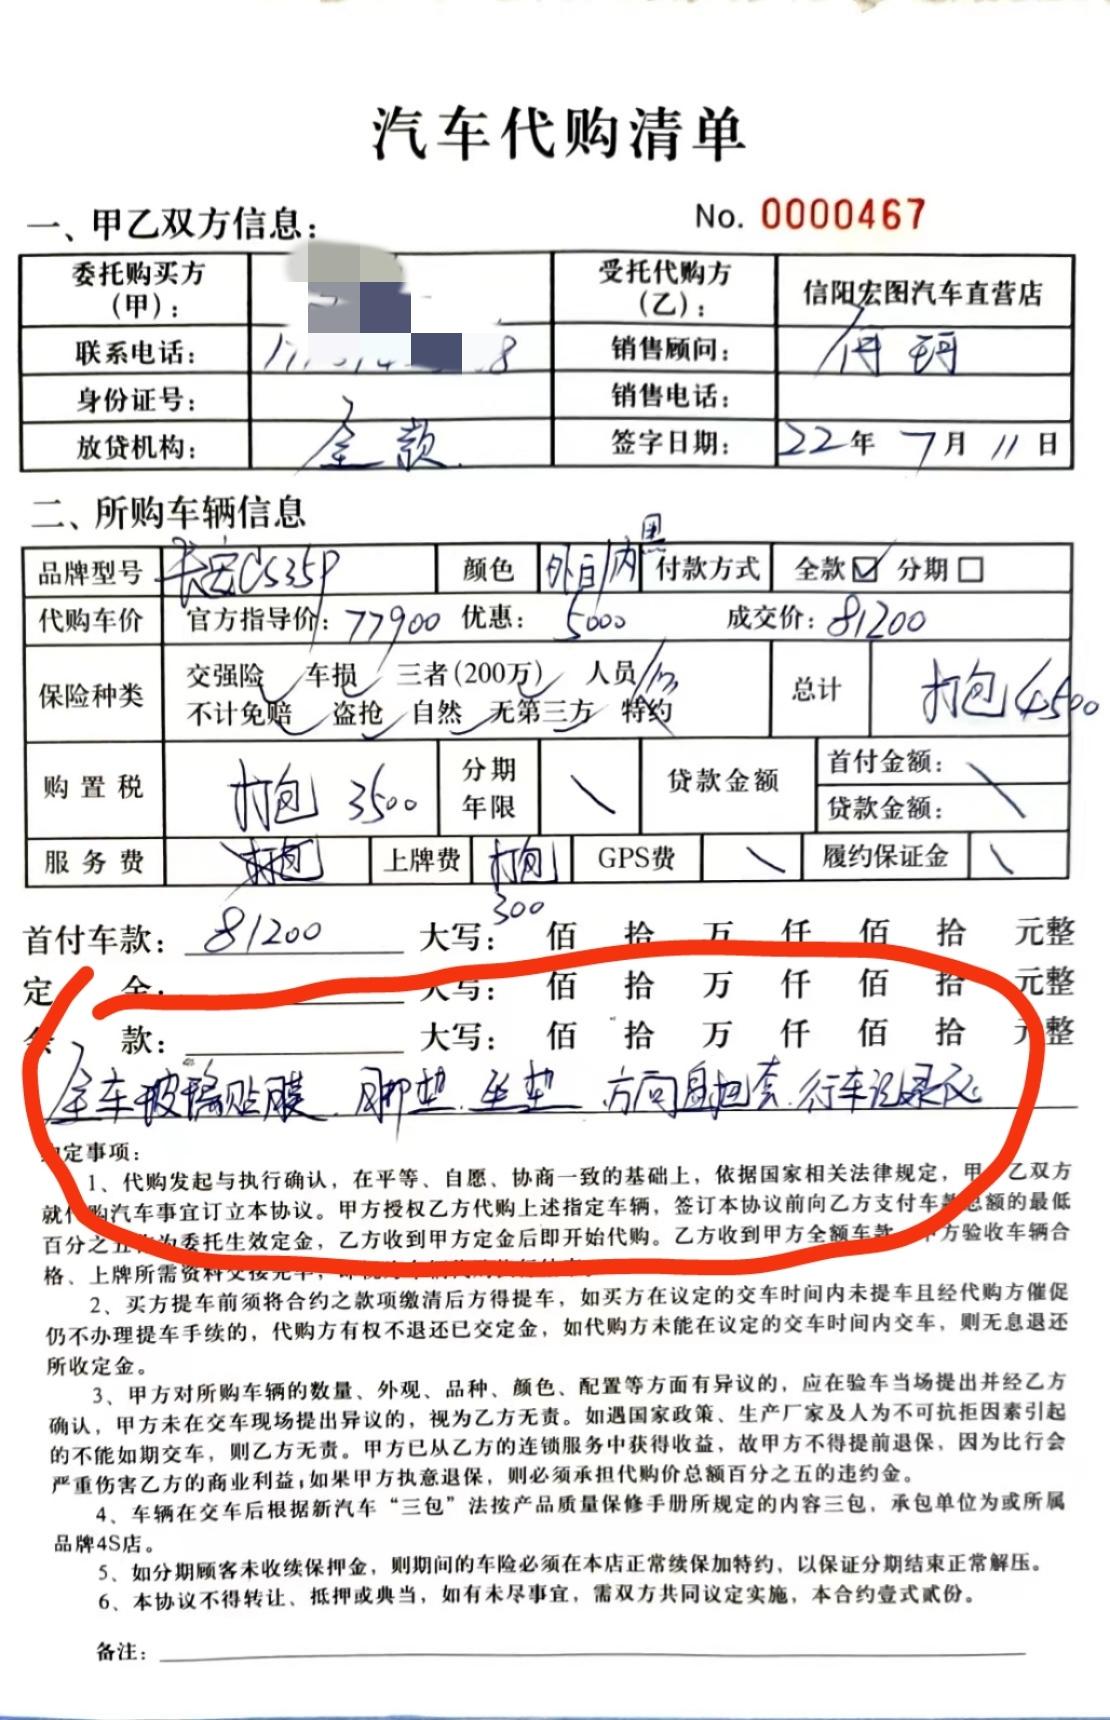 汽车代购清单
一、甲乙双方信息:
No. 0000467
委托购买方(甲): 受托代购方(乙): 信阳宏图汽车直营店
联系电话: 8 销售顾问:
身份证号: 销售电话:
放贷机构: 全款. 签字日期: 22年7月11日
二、所购车辆信息
品牌型号 长安CS35P 颜色 外白/内黑 付款方式 全款☑ 分期□
代购车价 官方指导价: 77900 优惠: 5000 成交价: 81200
保险种类 交强险 车损 三者(200万) 人员/1万 总计 打包4500
不计免赔 盗抢 自然 无第三方 特约
购置税 打包 3500 分期年限 \ 贷款金额 首付金额: \
贷款金额:
服务费 打包 上牌费 打包 300 GPS费 \ 履约保证金 \
首付车款: 81200 大写: 佰 拾 万 仟 佰 拾 元整
定 金: 大写: 佰 拾 万 仟 佰 拾 元整
余 款: 大写: 佰 拾 万 仟 佰 拾 元整
全车玻璃贴膜.脚垫.坐垫 方向盘把套.行车记录仪
约定事项:
1、代购发起与执行确认，在平等、自愿、协商一致的基础上，依据国家相关法律规定，甲、乙双方
就代购汽车事宜订立本协议。甲方授权乙方代购上述指定车辆，签订本协议前向乙方支付车款总额的最低
百分之五作为委托生效定金，乙方收到甲方定金后即开始代购。乙方收到甲方全额车款 甲方验收车辆合
格、上牌所需资料交接完毕，
2、买方提车前须将合约之款项缴清后方得提车，如买方在议定的交车时间内未提车且经代购方催促
仍不办理提车手续的，代购方有权不退还已交定金，如代购方未能在议定的交车时间内交车，则无息退还
所收定金。
3、甲方对所购车辆的数量、外观、品种、颜色、配置等方面有异议的，应在验车当场提出并经乙方
确认，甲方未在交车现场提出异议的，视为乙方无责。如遇国家政策、生产厂家及人为不可抗拒因素引起
的不能如期交车，则乙方无责。甲方已从乙方的连锁服务中获得收益，故甲方不得提前退保，因为比行会
严重伤害乙方的商业利益;如果甲方执意退保，则必须承担代购价总额百分之五的违约金。
4、车辆在交车后根据新汽车“三包”法按产品质量保修手册所规定的内容三包，承包单位为或所属
品牌4S店。
5、如分期顾客未收续保押金，则期间的车险必须在本店正常续保加特约，以保证分期结束正常解压。
6、本协议不得转让、抵押或典当，如有未尽事宜，需双方共同议定实施，本合约壹式贰份。
备注: